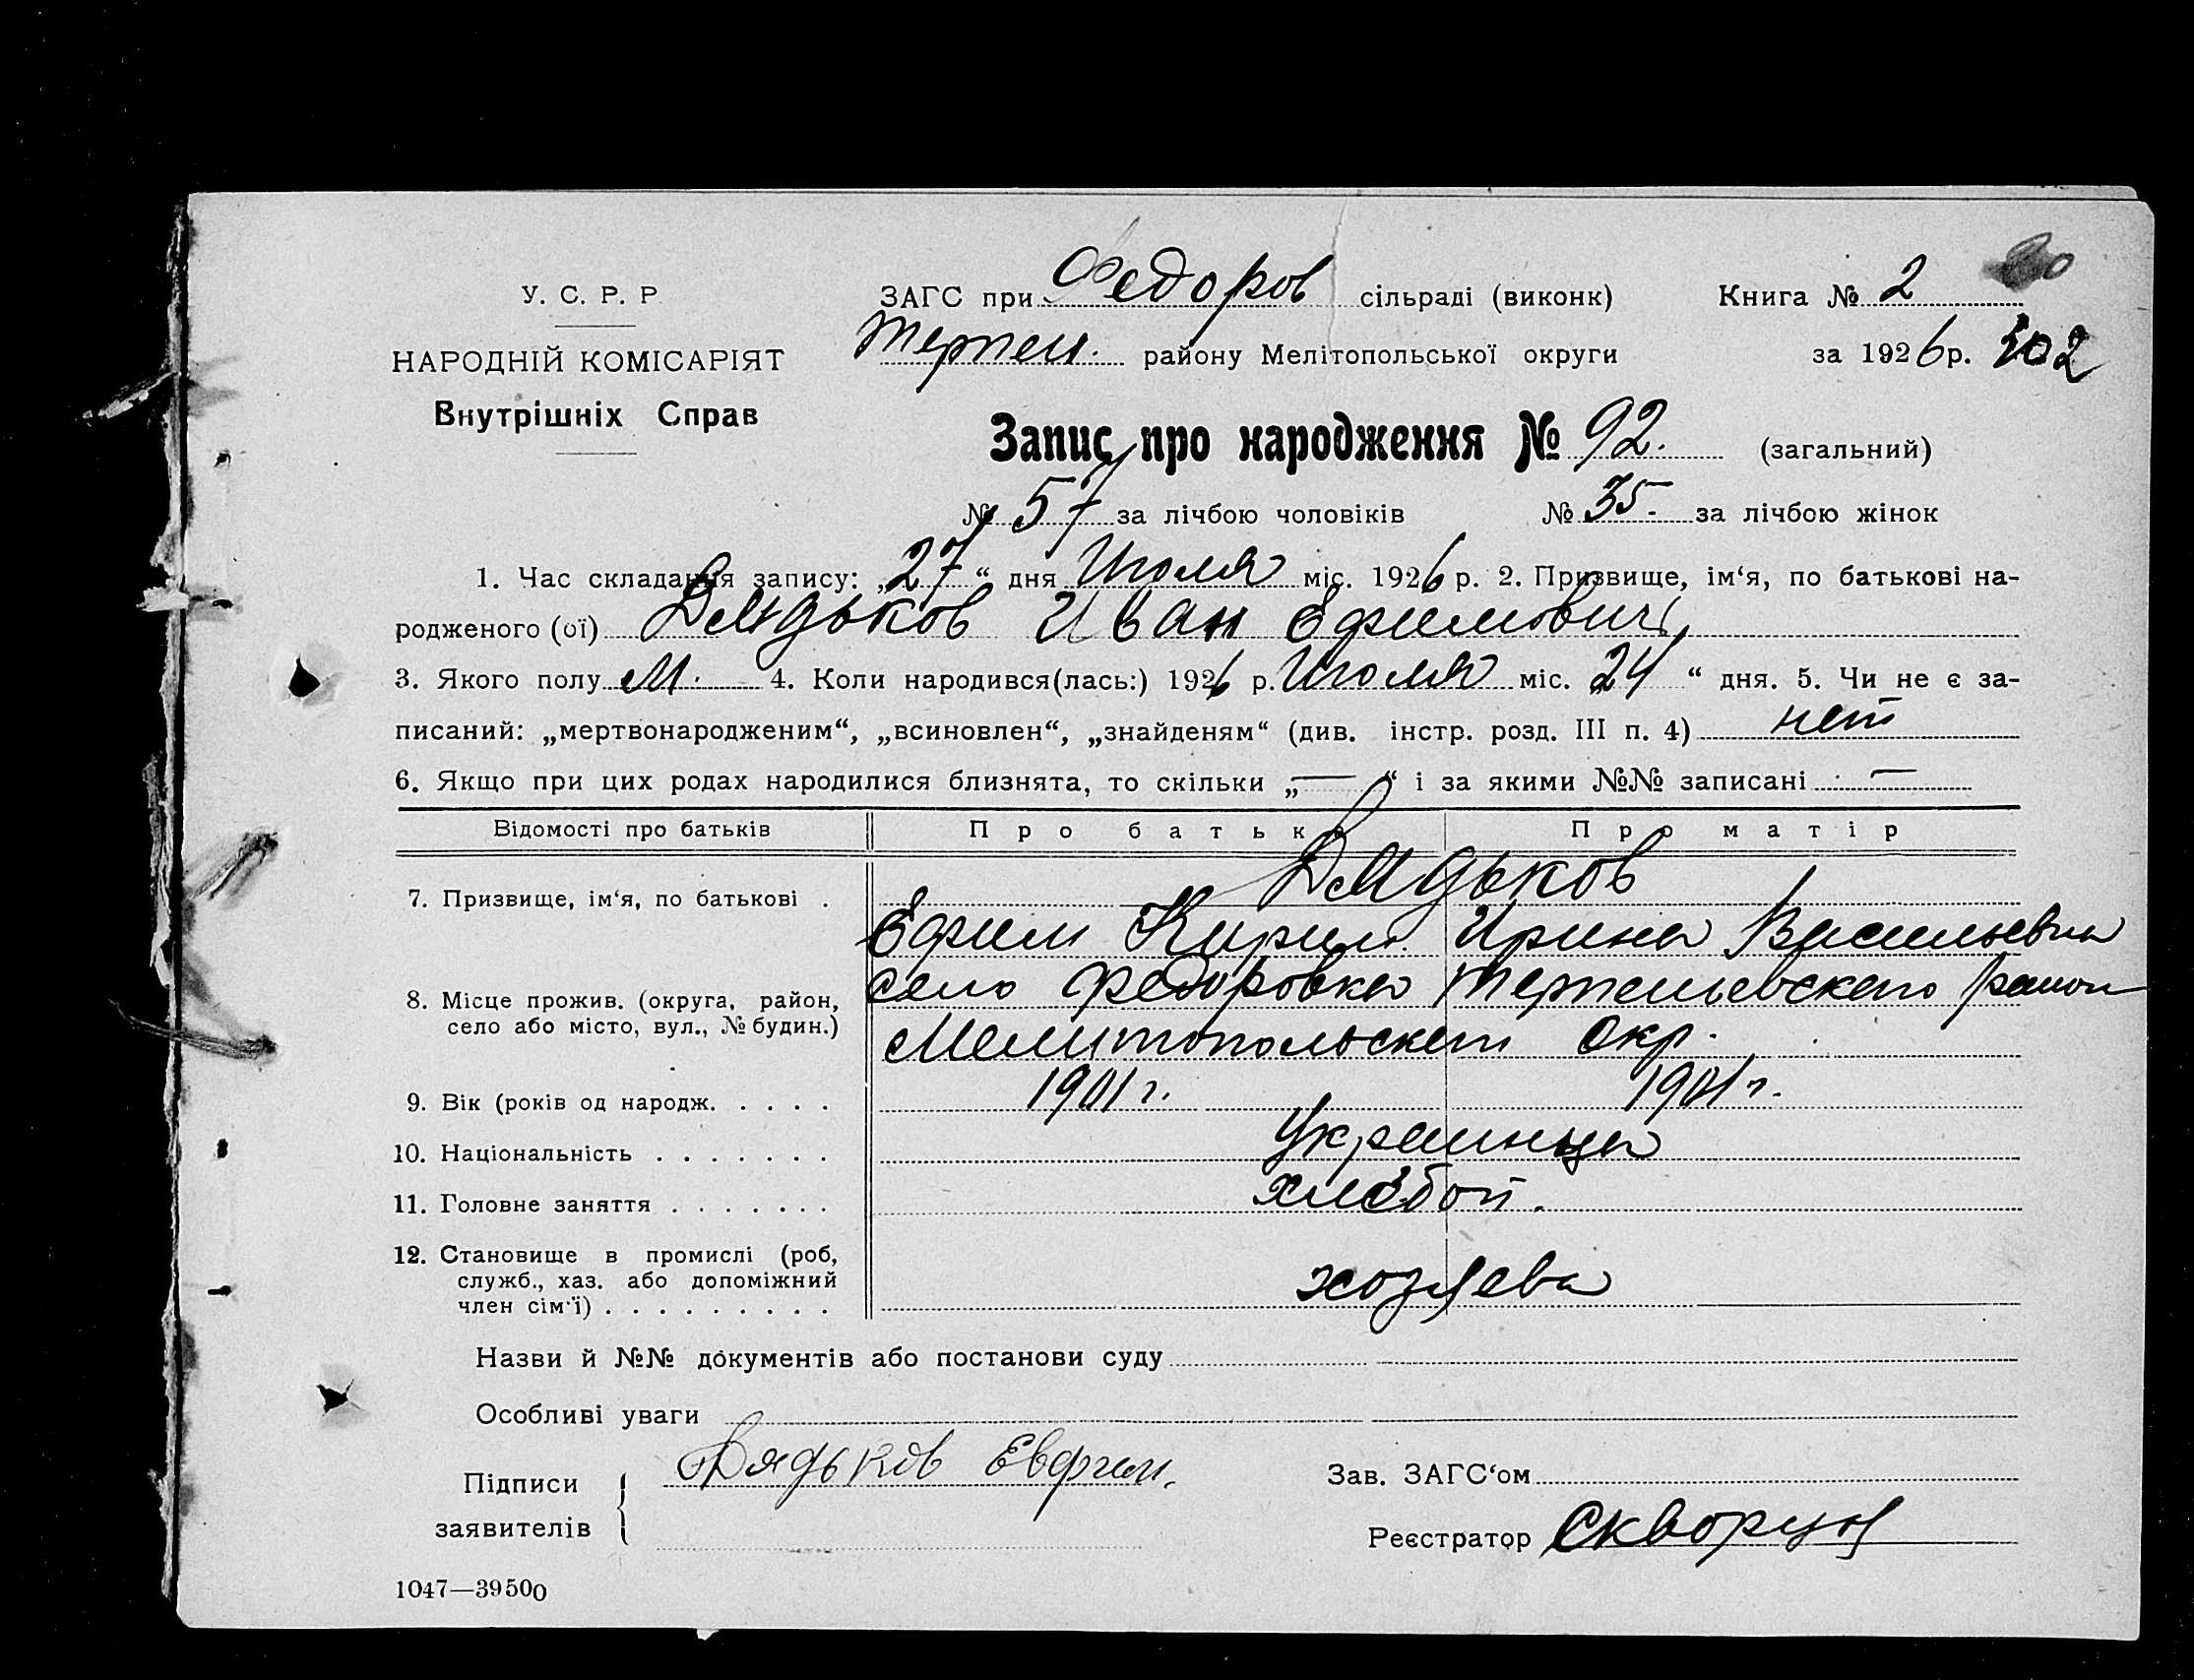 20
У. С. Р. Р
ЗАГС при Федоров сільраді (виконк) Книга № 2
Терпен. району Мелітопольської округи за 1926 р. 102
НАРОДНІЙ КОМІСАРІЯТ
Внутрішніх Справ
Запис про народження № 92. (загальний)
№ 57 за лічбою чоловіків № 35. за лічбою жінок
1. Час складання запису: „27“ дня Июля міс. 1926 р. 2. Призвище, ім‘я, по батькові на-
родженого (ої) Дядьков Иван Ефимович
3. Якого полу М. 4. Коли народився(лась:) 1926 р. Июля міс. „24“ дня. 5. Чи не є за-
писаний: „мертвонародженим“, „всиновлен“, „знайденям“ (див. інстр. розд. III п. 4) нет
6. Якщо при цих родах народилися близнята, то скільки „—“ і за якими №№ записані —
Відомості про батьків Про батька Про матір
Дядьков
7. Призвище, ім‘я, по батькові .
Ефим Кирил. Ирина Васильевна
8. Місце прожив. (округа, район, село Федоровка Терпеньевского район
село або місто, вул., № будин.)
Мелитопольской Окр.
9. Вік (років од народж. . . . . 1901 г. 1901 г.
10. Національність . . . . . . . Украинцы
11. Головне заняття . . . . . . . хлебоп.
12. Становище в промислі (роб,
служб., хаз. або допоміжний хозяева
член сім‘ї) . . . . . . . . .
Назви й №№ документів або постанови суду
Особливі уваги
Підписи Дядьков Евфим. Зав. ЗАГС‘ом
заявителів Реєстратор Скворцов
1047—39500